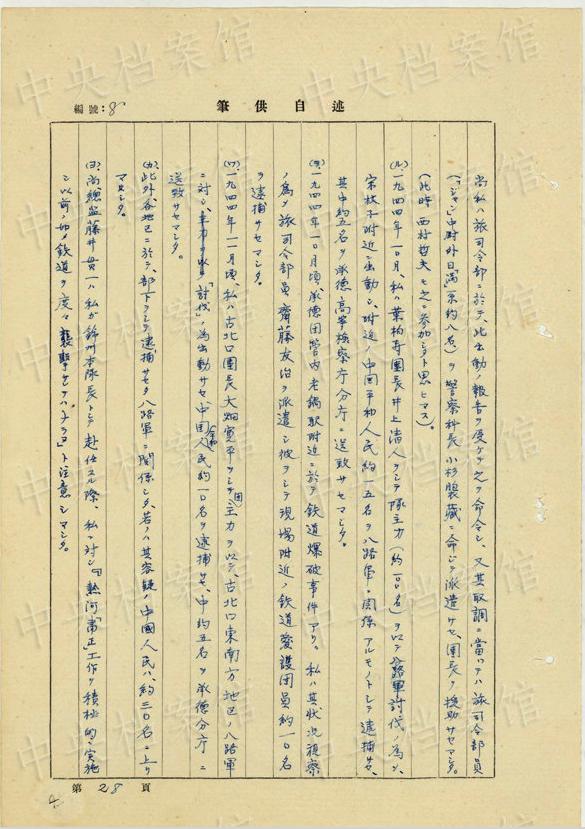 自述供筆
編號:8
尚私ハ旅司令部ニ於テ此出動ノ報告ヲ受ケ之ヲ命令シ、又其取調ニ當ッテハ旅司令部員
(「ジャン」中尉外日満系約八名)ヲ警察科長小杉 ニ命ジテ派遣サセ、團長ヲ援助サセマシタ。
(此時西村哲夫モ之ニ参加シタト思ヒマス)。
(ル)一九四四年一〇月、私ハ葉柏寿團長井上清人ヲシテ隊主力(約一〇〇名)ヲ以テ八路軍討伐ノ為メ、
宋杖子附近ニ出動シ、附近ノ中国平和人民約一五名ヲ八路軍ニ関係アルモノトシテ逮捕サセ、
其中約五名ヲ承徳高等検察庁分庁ニ送致サセマシタ。
(ヲ)一九四四年一〇月頃、承徳団管内老鍋駅附近ニ於テ鉄道爆破事件アリ。私ハ其状況視察
ノ為メ旅司令部員齋藤友治ヲ派遣シ彼ヲシテ現場附近ノ鉄道愛護団員約一〇名
ヲ逮捕サセマシタ。
(ワ)一九四四年一一月頃、私ハ古北口團長大畑寛平ヲシテ團主力ヲ以テ、古北口東南方地区ノ八路軍
ニ対シ、 「討伐」ノ為出動サセ、中国人民約一〇名ヲ逮捕サセ、中約五名ヲ承徳分庁ニ
送致サセマシタ。
(カ)此外各地区ニ於テ、部下ヲシテ逮捕サセタ八路軍ニ関係シタ、若クハ其容疑ノ中國人民ハ、約三〇名ニ上リ
マス。
(ヨ)尚總監藤井貫一ハ私ガ錦州本隊長トシテ赴任スル際、私ニ対シ「熱河「粛正」工作ヲ積極的ニ実施
シ以前ノ如ク鉄道ヲ度々襲撃サセテハナラヌ」ト注意シマシタ。
第28頁
中央档案馆